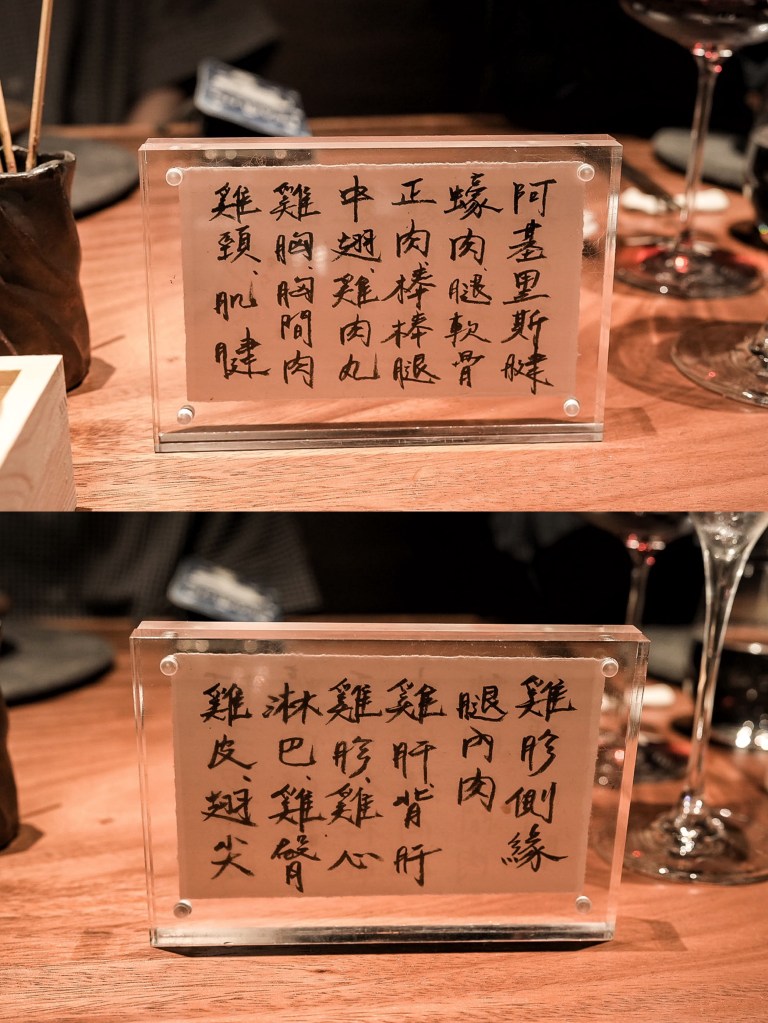 阿基里斯腱
蠔肉、腿軟骨
正肉棒棒腿
中翅、雞肉丸
雞胸、胸間肉
雞頸、肌腱
雞胗側緣
腿內肉
雞肝背肝
雞胗、雞心
淋巴、雞臀
雞皮、翅尖